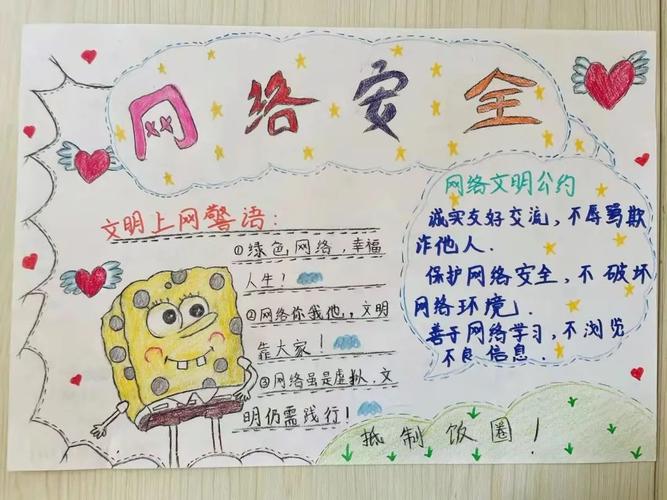 网络安全
文明上网警语:
①绿色,网络,幸福
人生!
②网络你我他,,文明
靠大家!
③网络虽是虚拟.文
明仍需践行!
网络文明公约
诚实友好交流,不辱骂欺
诈他人.
保护网络安全,不破坏
网络环境.
善于网络学习,不浏览
不良信息.
抵制饭圈!